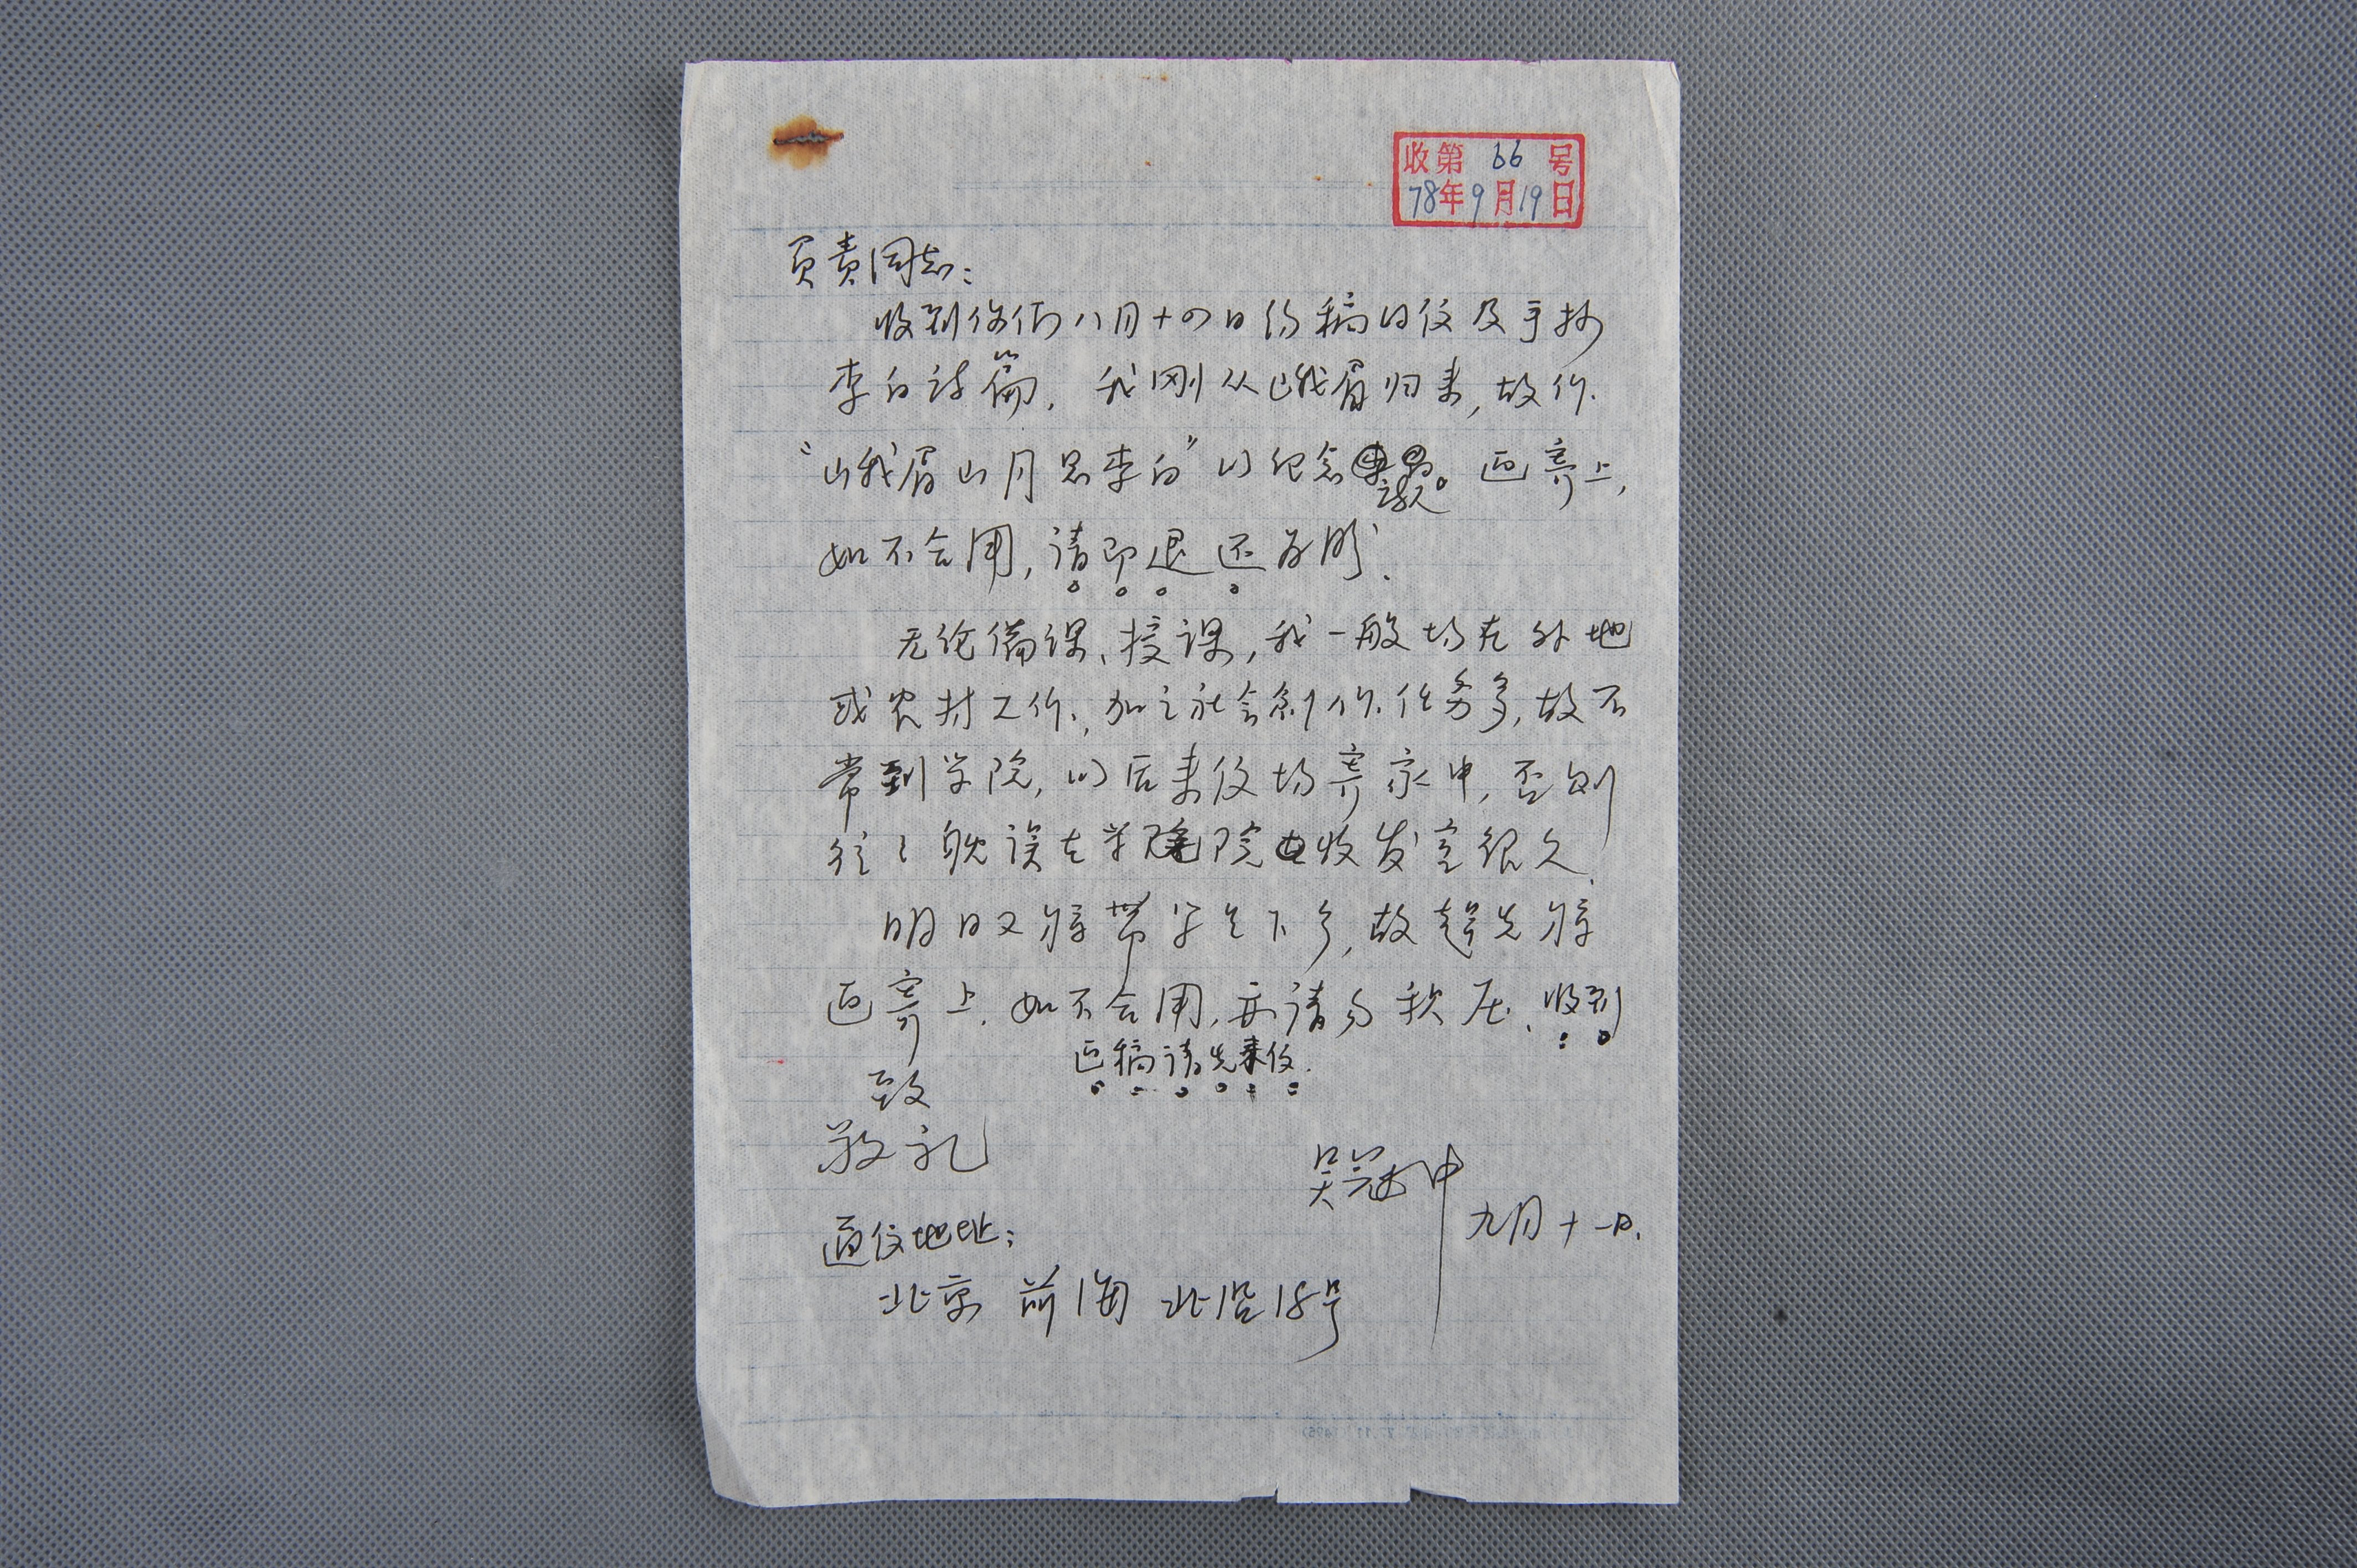 收第 66 号
78年9月19日
负责同志：
收到你们八月十四日约稿的信及手抄
李白诗篇. 我刚从峨眉归来, 故作
“峨眉山月思李白”以纪念 画寄上,
如不合用, 请即退还为盼.
无论备课、授课, 我一般均在外地
或农村工作, 加之社会创作任务多, 故不
常到学院, 以后来信均寄家中, 否则
往々耽误在学院收发室很久.
明日又将带学生下乡, 故赶先将
画寄上. 如不合用, 亦请勿积压、收到
画稿请先来信.
致
敬礼
吴冠中
九月十一日.
通信地址：
北京 前海 北沿18号